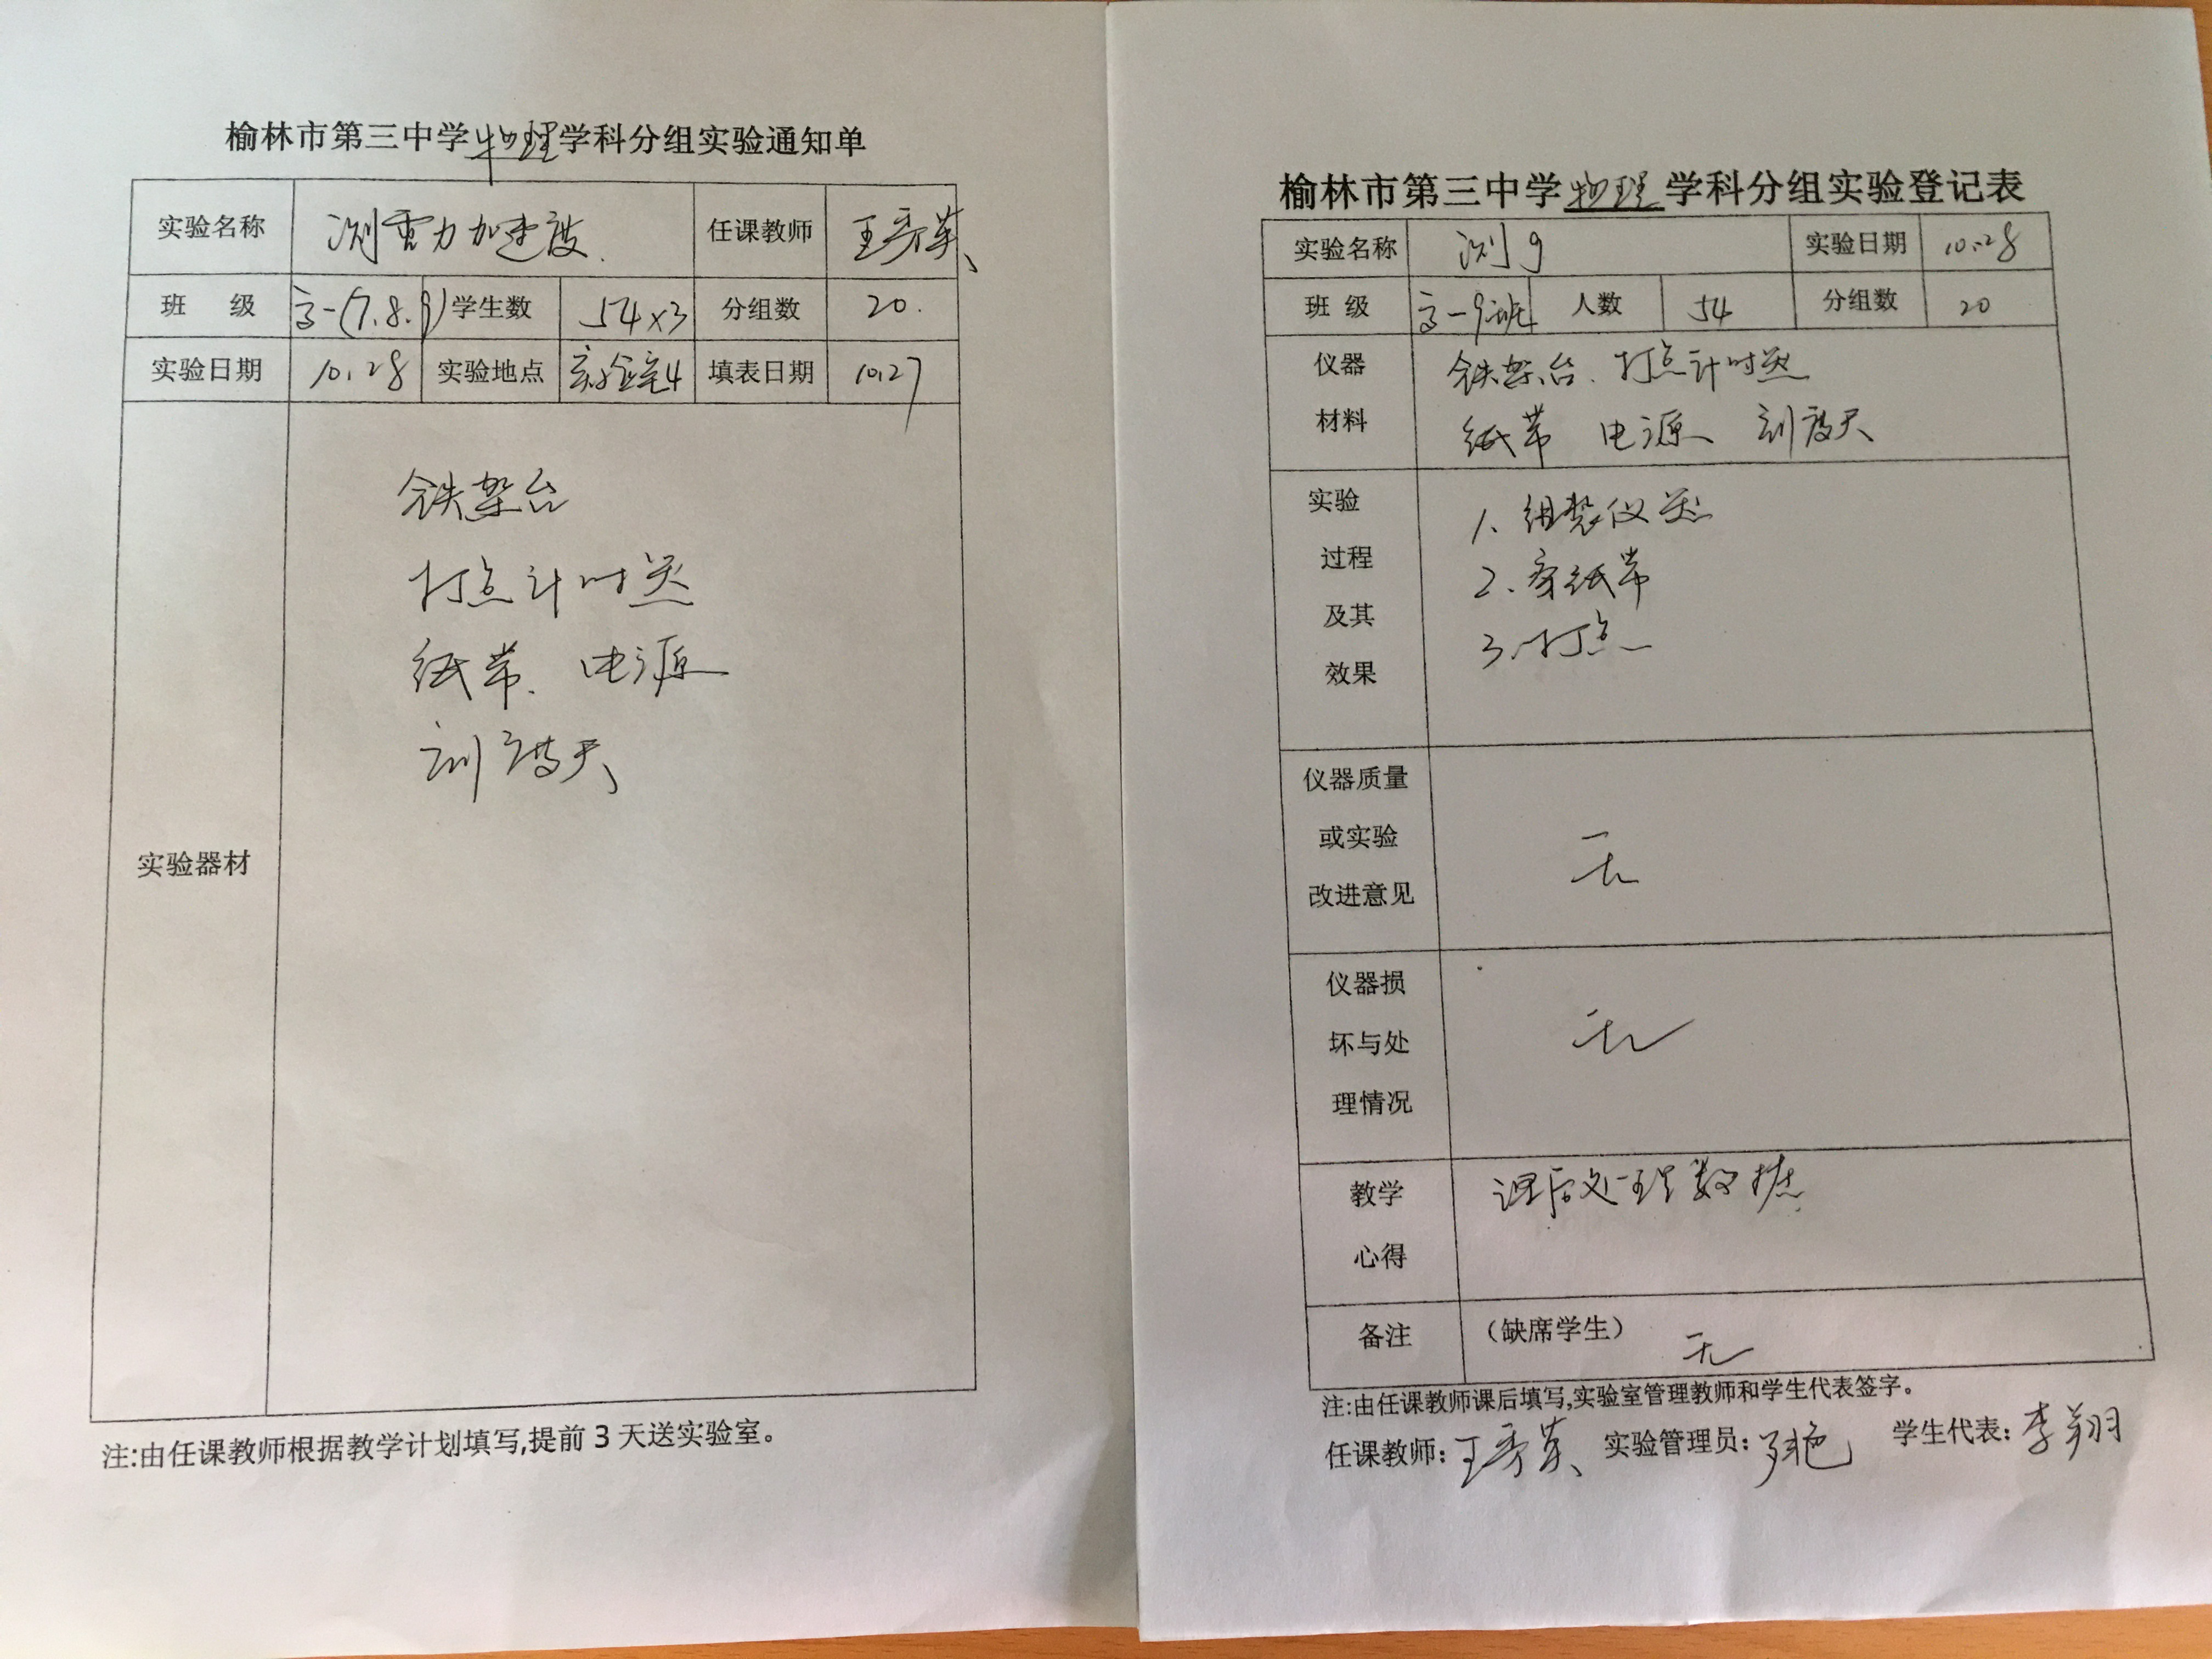 榆林市第三中学物理学科分组实验通知单
实验名称 测重力加速度. 任课教师 王秀英
班 级 高一(7.8.9) 学生数 54×3 分组数 20.
实验日期 10.28 实验地点 实验室4 填表日期 10.27
实验器材
铁架台
打点计时器
纸带、电源
刻度尺
注:由任课教师根据教学计划填写,提前3天送实验室。
榆林市第三中学物理学科分组实验登记表
实验名称 测g 实验日期 10.28
班 级 高一9班 人数 54 分组数 20
仪器
材料
铁架台、打点计时器
纸带 电源 刻度尺
实验
过程
及其
效果
1、组装仪器
2、穿纸带
3、打点
仪器质量
或实验
改进意见
无
仪器损
坏与处
理情况
无
教学
心得
课后处理数据
备注 (缺席学生) 无
注:由任课教师课后填写,实验室管理教师和学生代表签字。
任课教师: 王秀英 实验管理员: 学生代表: 李翔羽